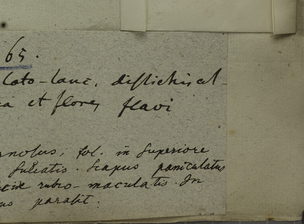 65.
lato-lanc. distichis et
a et flores flavi
nosus; fol. in superiore
sulcatis. Scapus paniculatus
rubro-maculatis. In